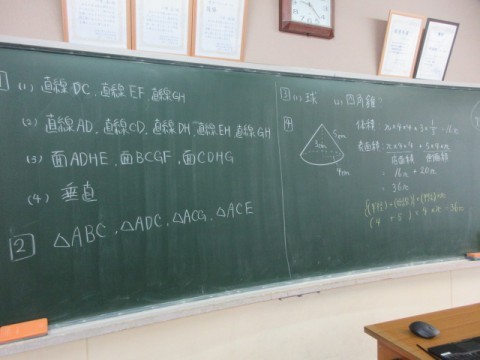 1 (1) 直線DC, 直線EF, 直線GH
(2) 直線AD, 直線CD, 直線DH, 直線EH, 直線GH
(3) 面ADHE, 面BCGF, 面CDHG
(4) 垂直
2 △ABC, △ADC, △ACG, △ACE
3 (1) 球 (2) 四角錐
4
5cm
3cm
4cm
体積: π×4×4×3×1/3 = 16π
表面積: π×4×4 + 5×4×π
底面積 側面積
= 16π + 20π
= 36π
(4 + 5) × 4 × π = 36π